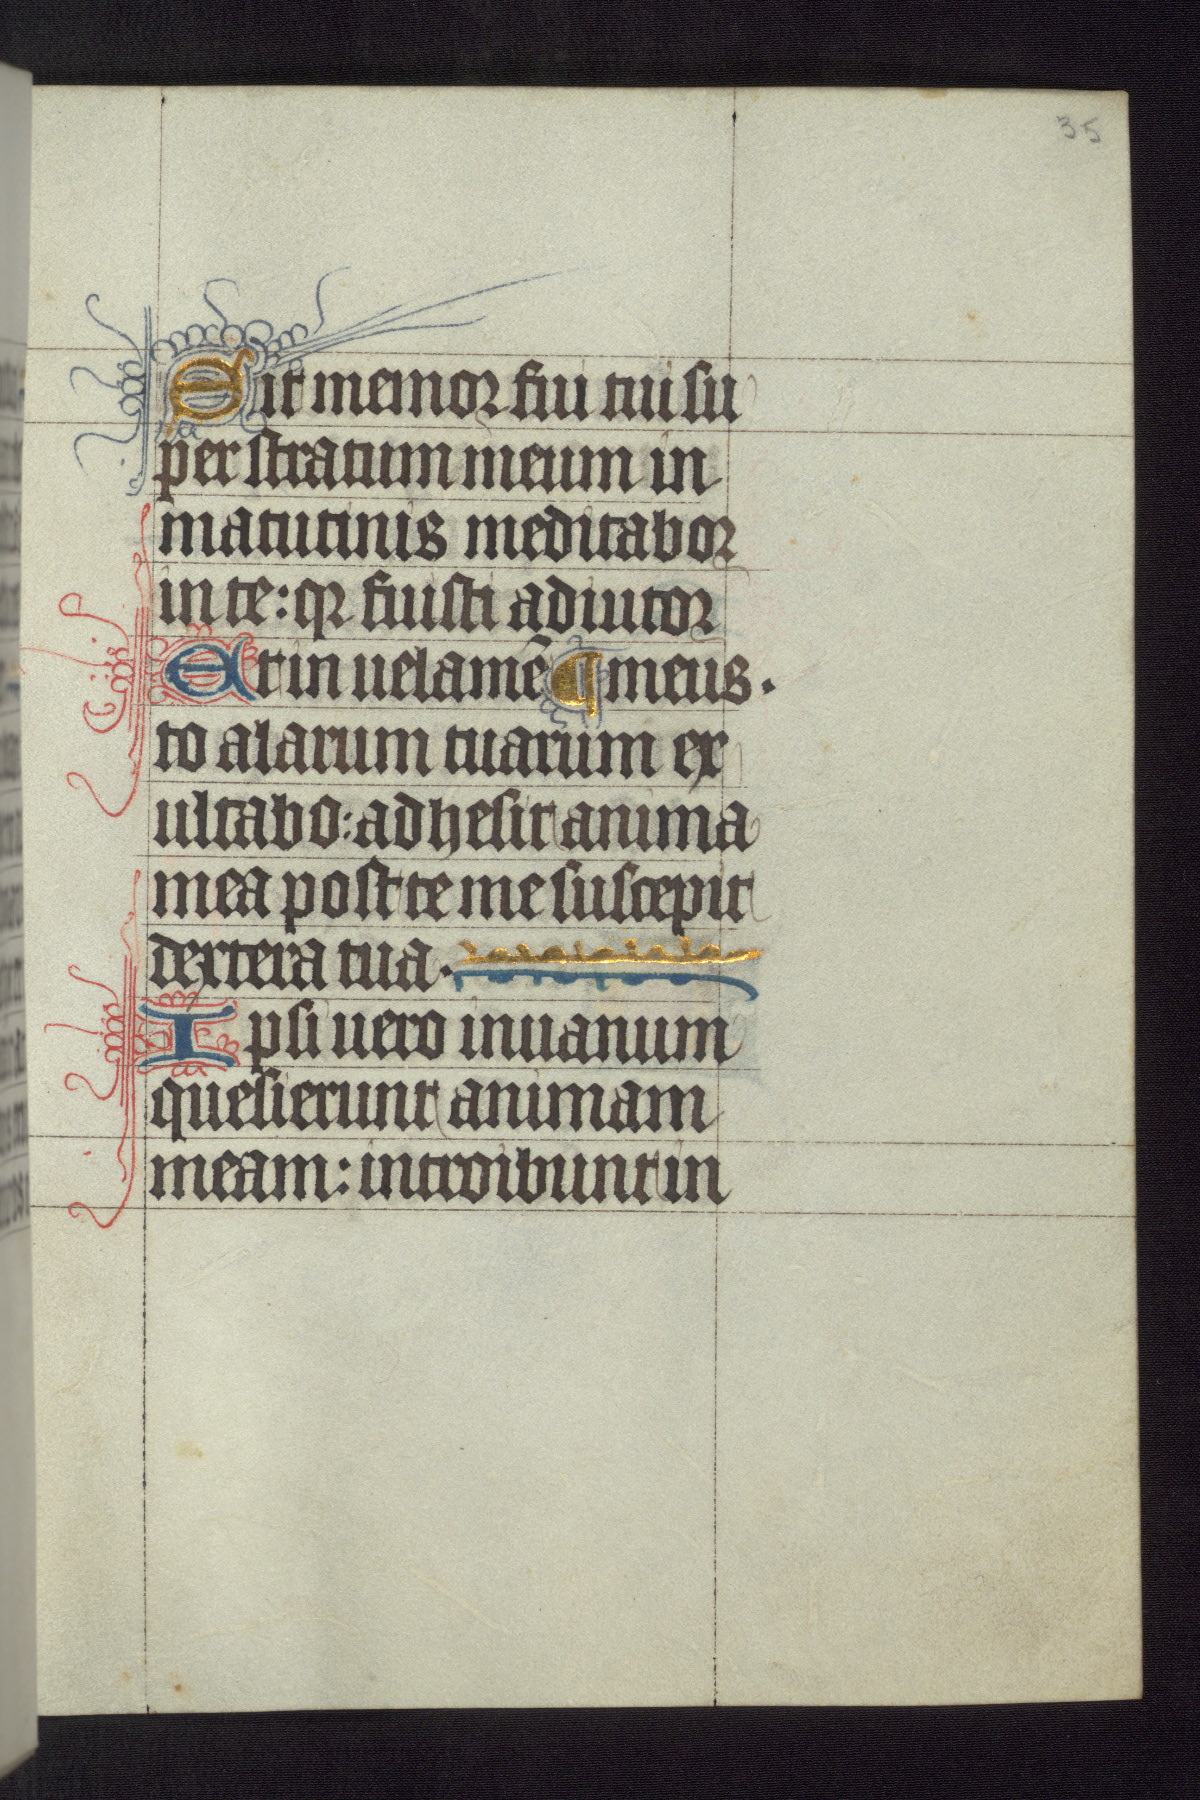 35
Sit memor fui tui su
per stratum meum in
matutinis meditabor
in te: qr fuisti adiutor
Et in uelamē ¶ meus.
to alarum tuarum ex
ultabo: adhesit anima
mea post te me suscepit
dextera tua.
Ipsi uero inuanum
quesierunt animam
meam: introibunt in